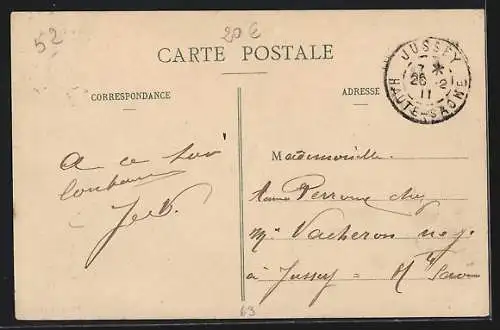 52
20 €
CARTE POSTALE
CORRESPONDANCE
ADRESSE
JUSSEY
7 *
26 2
11
HAUTE-SAÔNE
a ce soir
Mademoiselle
Perrone chez
Mr Vacheron neg.
à Jussey = Hte Saône
63